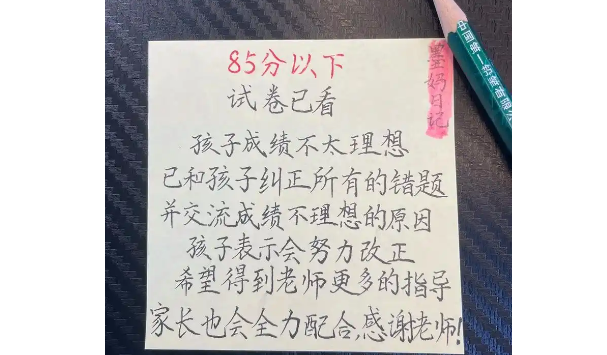 85分以下
试卷已看
孩子成绩不太理想
已和孩子纠正所有的错题
并交流成绩不理想的原因
孩子表示会努力改正
希望得到老师更多的指导
家长也会全力配合,感谢老师!
墨妈日记